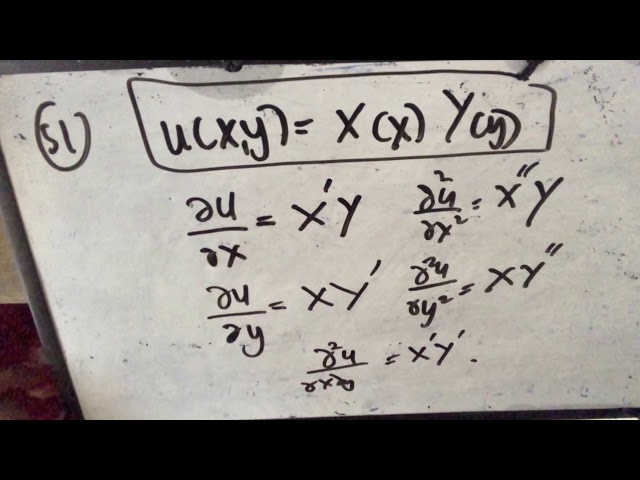 51) u(x,y) = X(x) Y(y)
∂u/∂x = X'Y ∂²u/∂x² = X''Y
∂u/∂y = XY' ∂²u/∂y² = XY''
∂²u/∂x∂y = X'Y'.